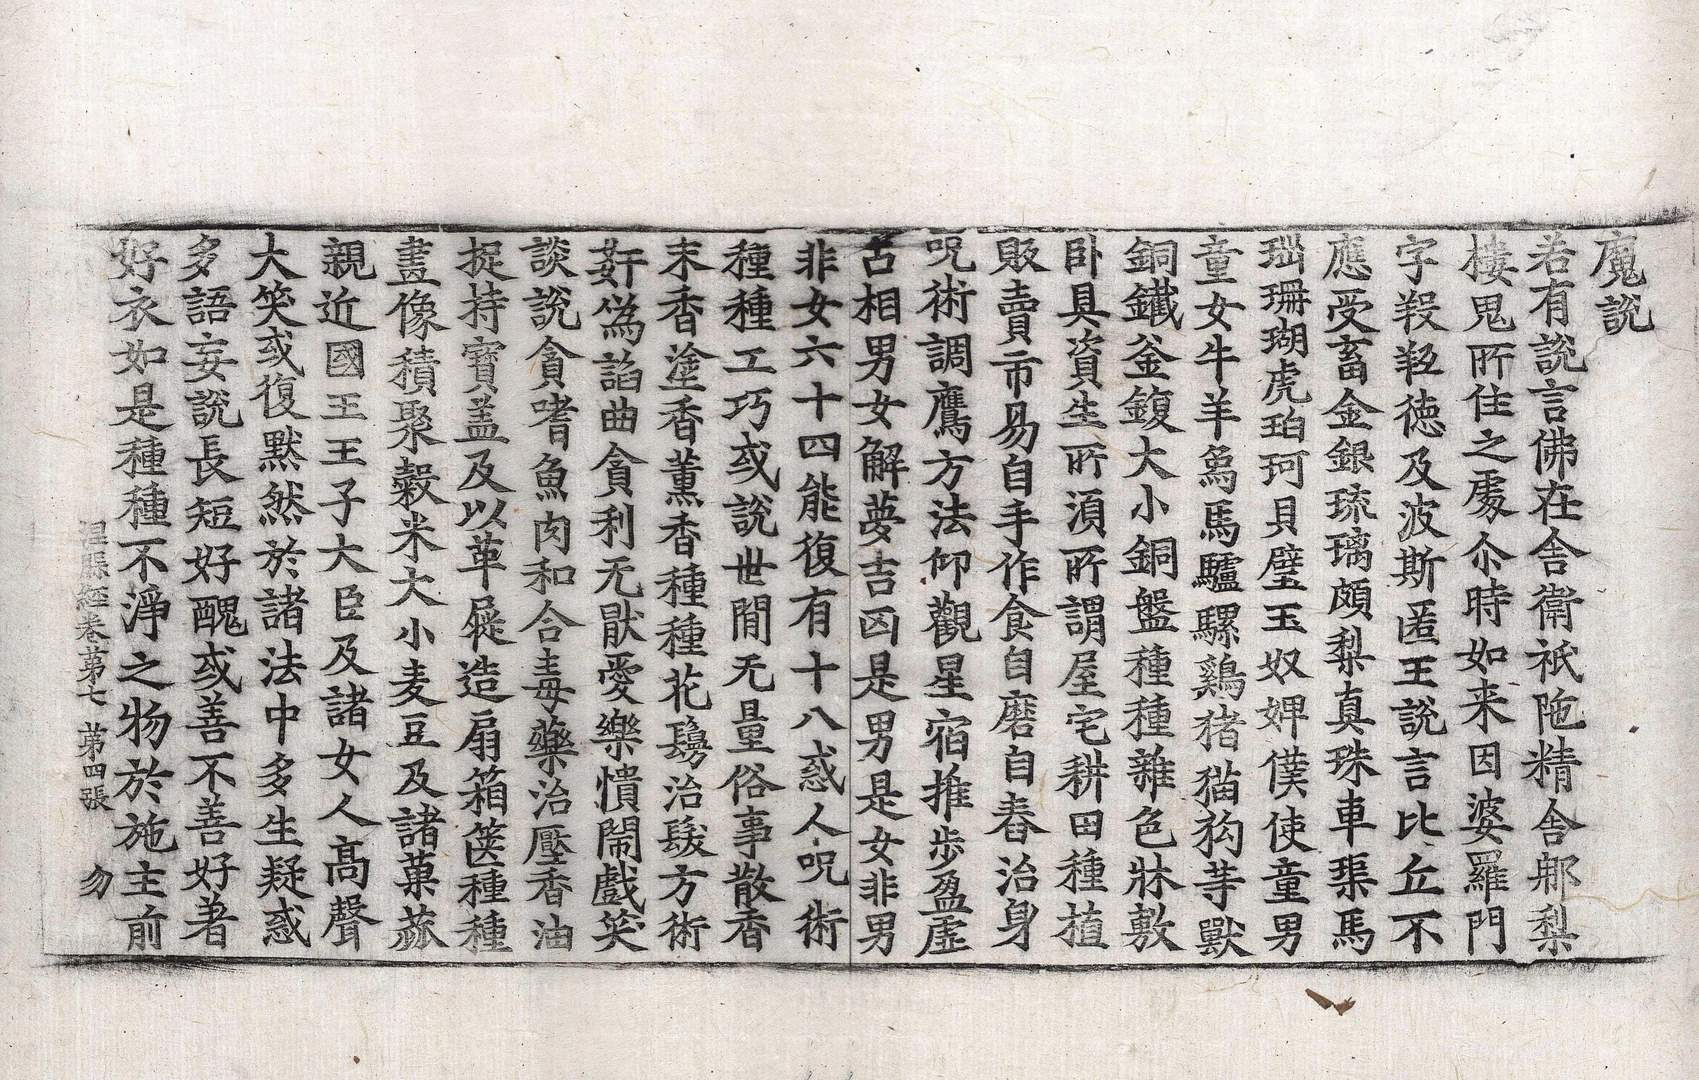 魔說
若有說言佛在舍衛祇陁精舍郍梨
樓鬼所住之處尒時如来因婆羅門
字羖羝徳及波斯匿王說言比丘不
應受畜金銀琉璃頗梨真珠車𤦲馬
瑙珊瑚虎珀珂貝璧玉奴婢僕使童男
童女牛羊象馬驢騾鷄猪猫狗等獸
銅鐵釜鍑大小銅盤種種雜色牀敷
卧具資生所湏所謂屋宅耕田種植
販賣市易自手作食自磨自舂治身
呪術調鷹方法仰觀星宿推步盈虛
占相男女解夢吉凶是男是女非男
非女六十四能復有十八惑人呪術
種種工巧或說世閒无量俗事散香
末香塗香薰香種種花鬘治髮方術
姧偽諂曲貪利无猒愛樂憒閙戲笑
談說貪嗜魚肉和合毒藥治壓香油
捉持寶盖及以革屣造扇箱篋種種
畫像積聚穀米大小麦豆及諸菓蓏
親近國王王子大臣及諸女人髙聲
大笑或復黙然於諸法中多生疑惑
多語妄說長短好醜或善不善好著
好衣如是種種不淨之物於施主前
涅槃經卷苐七 苐四張 勿